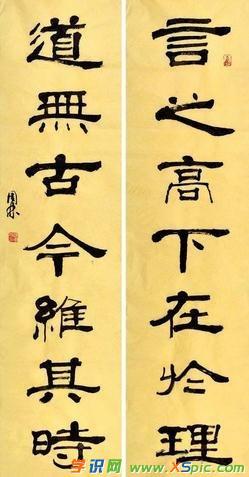 言之高下在於理
道無古今維其時
学识网
www.XSpic.com